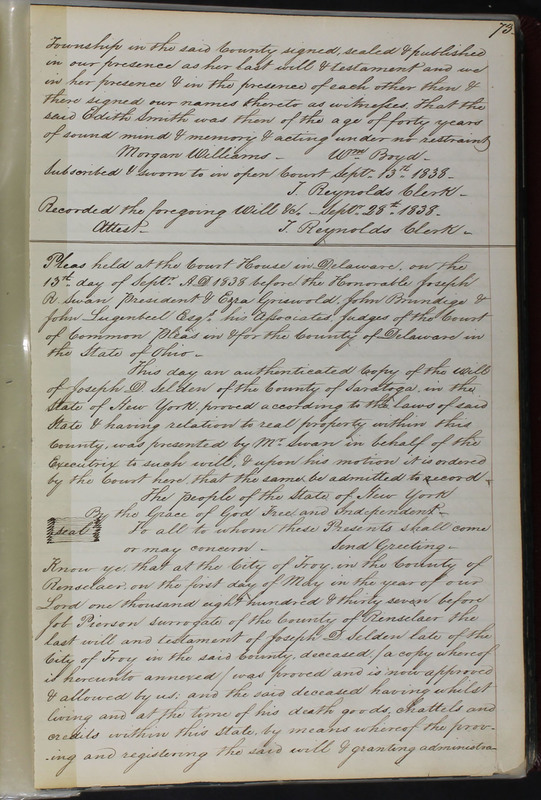 73.
Township in the said County signed, sealed & published
in our presence as her last will & testament and we
in her presence & in the presence of each other then &
there signed our names thereto as witnesses. That the
said Edith Smith was then of the age of forty years
of sound mind & memory & acting under no restraint
Morgan Williams - Wm Boyd -
Subscribed & sworn to in open Court Sept. 13th 1838-
T. Reynolds Clerk -
Recorded the foregoing Will &c. - Sept. 28th 1838-
Attest- T. Reynolds Clerk -
Pleas held at the Court House in Delaware, on the
13th day of Septr A.D 1838 before the Honorable Joseph
R. Swan President & Ezra Griswold, John Brundige &
John Lugenbeel Esqs his Associates, judges of the Court
of Common Pleas in & for the County of Delaware in
the State of Ohio -
This day an authenticated Copy of the Will
of Joseph D. Selden of the County of Saratoga in the
State of New York, proved according to the laws of said
State & having relation to real property within this
County, was presented by Mr. Swan in behalf of the
Executrix to such will, & upon his motion it is ordered
by the Court here, that the same be admitted to record.
The People of the State of New York
By the Grace of God Free and Independent-
seal To all to whom these Presents shall come
or may concern - Send Greeting -
Know ye, that at the City of Troy, in the County of
Renselaer, on the first day of May in the year of our
Lord one thousand eight hundred & thirty seven before
Job Pierson Surrogate of the County of Renselaer the
last will and testament of Joseph D. Selden late of the
City of Troy in the said County, deceased, (a copy whereof
is hereunto annexed) was proved and is now approved
& allowed by us; and the said deceased having whilst
living and at the time of his death goods, chattels and
credits within this state, by means whereof the prov-
-ing and registering the said will & granting administra-